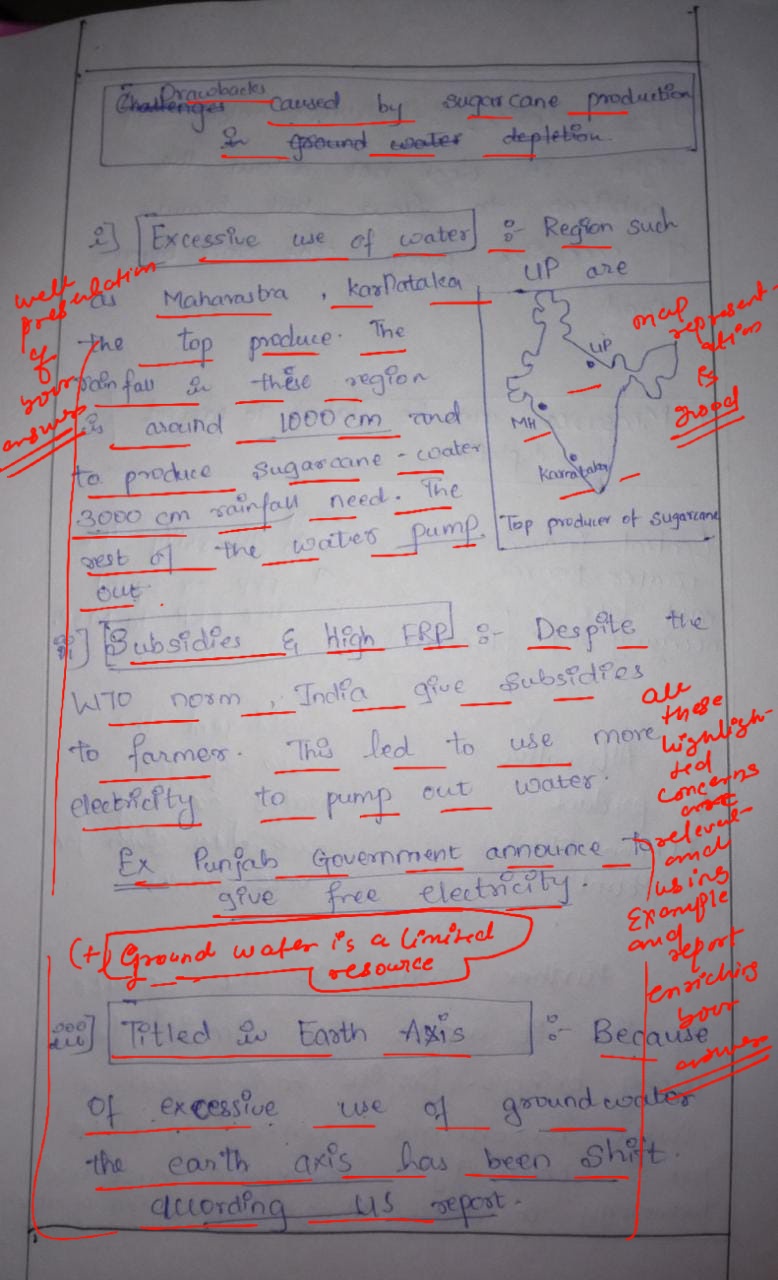 Drawbacks
Challenges caused by sugarcane production
in ground water depletion.
i] Excessive use of water :- Region such
as Maharastra, karnataka UP are
the top produce. The
rainfall in these region
is around 1000 cm and
to produce sugarcane - water
3000 cm rainfall need. The
rest of the water pump
out.
UP
MH
Karnataka
Top producer of sugarcane
well
presentation
of
your
answer
map
represent-
ation
is
good
ii] Subsidies & high FRP :- Despite the
WTO norm, India give subsidies
to farmer. This led to use more
electricity to pump out water.
Ex Punjab Government announce to
give free electricity.
(+) Ground water is a limited
resource
all
these
highligh-
ted
concerns
are
relevent
and
using
Example
and
report
enriching
your
answer
iii] Titled in Earth Axis :- Because
of excessive use of ground water
the earth axis has been shift.
according US report.